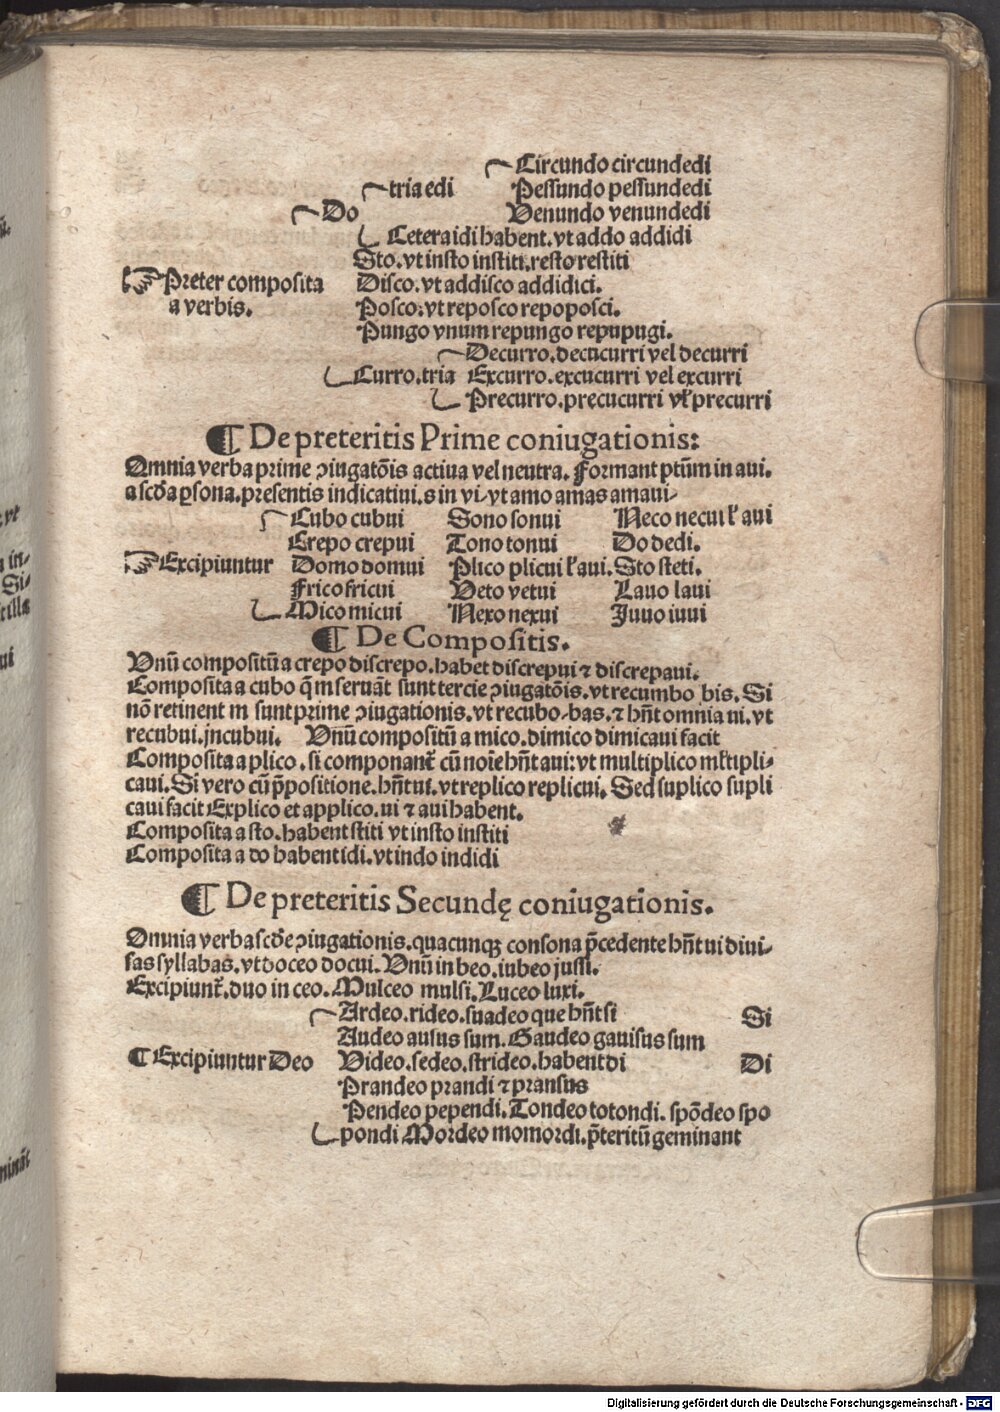 Circundo circundedi
tria edi Pessundo pessundedi
Do Venundo venundedi
Cetera idi habent. vt addo addidi
Sto. vt insto institi. resto restiti
☞ Preter composita Disco. vt addisco addidici.
a verbis. Posco. vt reposco repoposci.
Pungo vnum repungo repupugi.
Decurro. decucurri vel decurri
Curro. tria Excurro. excucurri vel excurri
Precurro. precucurri vꝉ precurri
¶ De preteritis Prime coniugationis:
Omnia verba prime ꝯiugatõis actiua vel neutra. Formant ptũm in aui.
a scďa ꝑsona. presentis indicatiui. s in vi. vt amo amas amaui.
Cubo cubui Sono sonui Neco necui ꝉ aui
Crepo crepui Tono tonui Do dedi.
☞ Excipiuntur Domo domui Plico plicui ꝉ aui. Sto steti.
Frico fricui Veto vetui Lauo laui
Mico micui Nexo nexui Juuo iuui
¶ De Compositis.
Vnũ compositũ a crepo discrepo. habet discrepui ⁊ discrepaui.
Composita a cubo q̃ m seruãt sunt tercie ꝯiugatõis. vt recumbo bis. Si
nõ retinent m sunt prime ꝯiugationis. vt recubo. bas. ⁊ hñt omnia ui. vt
recubui. jncubui. Vnũ compositũ a mico. dimico dimicaui facit
Composita a plico. si componant᷑ cũ noĩe hñt aui: vt multiplico mꝉtipli-
caui. Si vero cũ p̃positione. hñt ui. vt replico replicui. Sed suplico supli
caui facit Explico et applico. ui ⁊ aui habent.
Composita a sto. habent stiti vt insto institi
Composita a do habent idi. vt indo indidi
¶ De preteritis Secundę coniugationis.
Omnia verba scďe ꝯiugationis. quacunqꝫ consona p̃cedente hñt ui diui-
sas syllabas. vt doceo docui. Vnũ in beo. iubeo jussi.
Excipiunt᷑. duo in ceo. Mulceo mulsi. Luceo luxi.
Ardeo. rideo. suadeo que hñt si Si
Audeo ausus sum. Gaudeo gauisus sum
¶ Excipiuntur Deo Video. sedeo. strideo. habent di Di
Prandeo prandi ⁊ pransus
Pendeo pependi. Tondeo totondi. spõdeo spo
pondi Mordeo momordi. p̃teritũ geminant
Digitalisierung gefördert durch die Deutsche Forschungsgemeinschaft - DFG